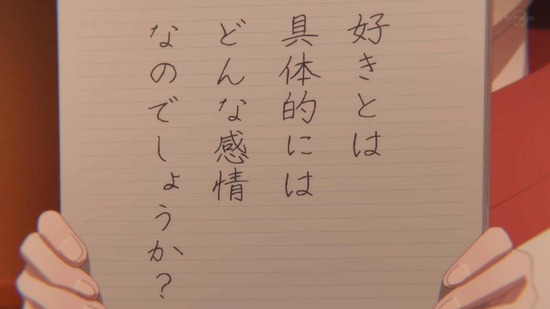 好きとは
具体的には
どんな感情
なのでしょうか？
TV TOKYO